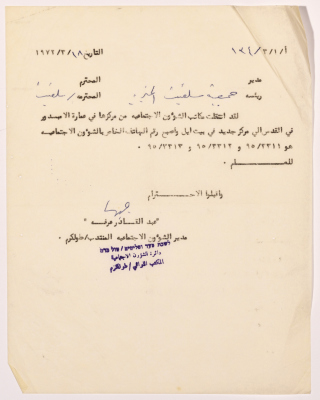 أ/١/٣/١٣٤ التاريخ ١٨/٣/١٩٧٢
مدير المحترم
رئيسه جمعية سلفيت الخيرية المحترمه / سلفيت
لقد انتقلت مكاتب الشؤون الاجتماعيه من مركزها في عمارة
في القدس الى مركز جديد في بيت ايل واصبح رقم الهاتف الخاص بالشؤون الاجتماعيه
هو ٦٥/٣٣١١ و ٦٥/٣٣١٢ و ٦٥/٣٣١٣ .
للعلم .
واقبلوا الاحترام
" عبد القادر عرفه "
مدير الشؤون الاجتماعيه المنتدب/طولكرم .
دائرة الشؤون الاجتماعية
المكتب اللوائي / طولكرم